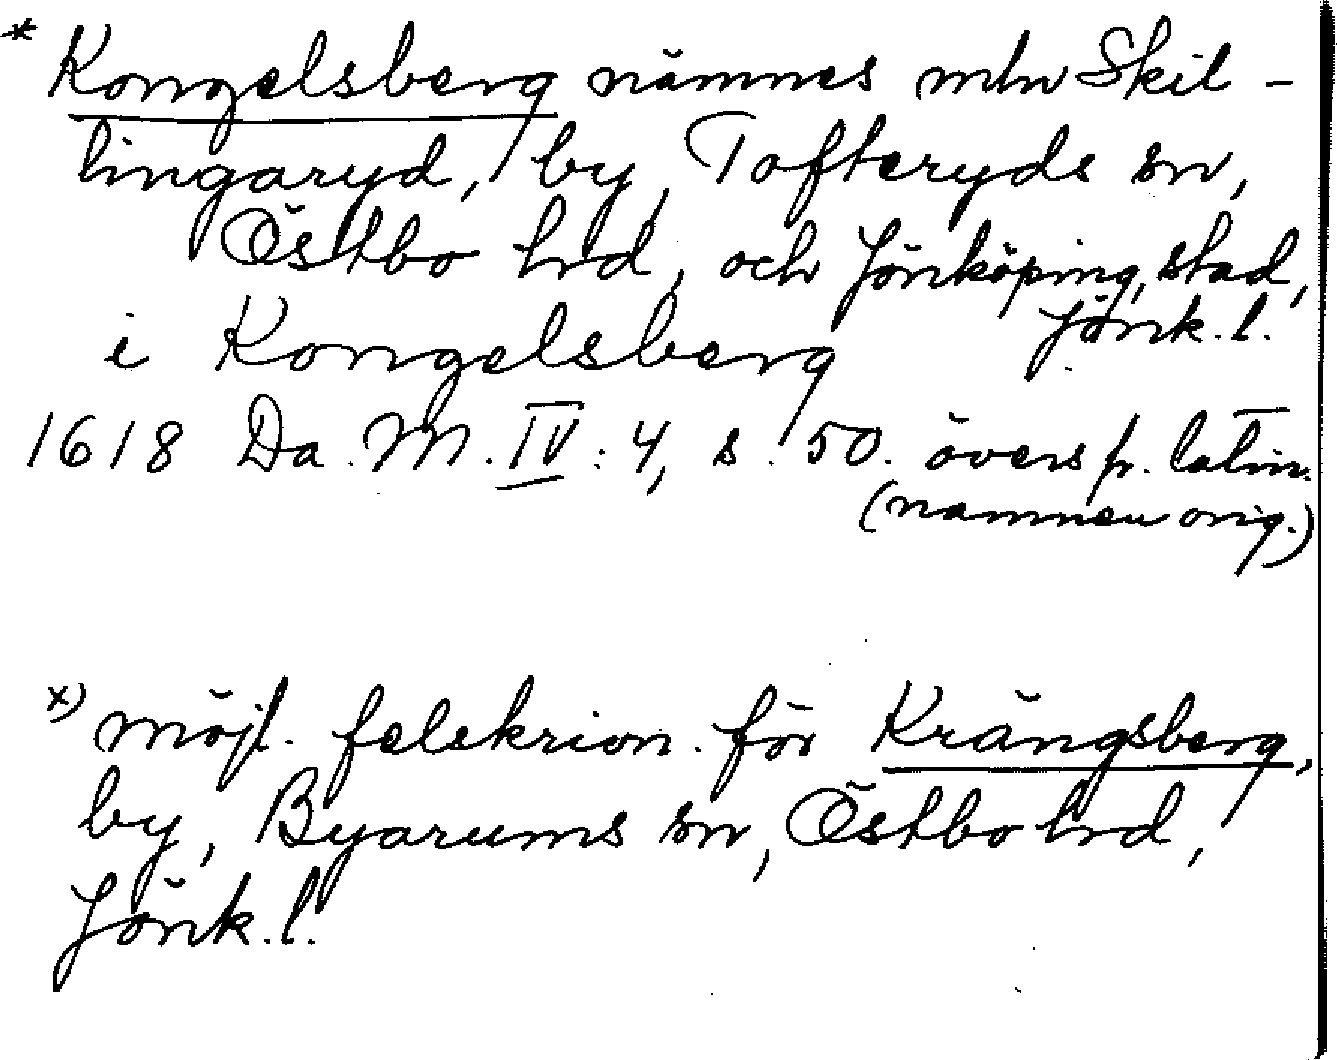 * Kongelsberg nämnes mln Skil-
lingaryd, by, Tofteryds sn,
Östbo hrd, och Jönköping, stad,
Jönk. l.
i Kongelsberg
1618 Da. M. IV: 4, s. 50. övers fr. latin.
(namnen orig.)
x) möjl. felskrivn. för Krängsberg,
by, Byarums sn, Östbo hrd,
Jönk. l.